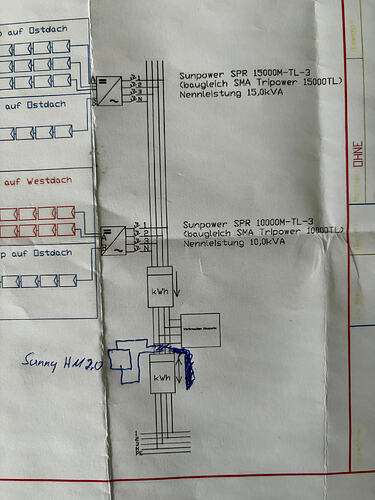 p auf Ostdach
auf Ostdach
auf Westdach
p auf Ostdach
1
2
3
N
Sunpower SPR 15000M-TL-3
(baugleich SMA Tripower 15000TL)
Nennleistung 15,0kVA
1
2
3
N
Sunpower SPR 10000M-TL-3
(baugleich SMA Tripower 10000TL)
Nennleistung 10,0kVA
kWh
Sunny HM 2.0
kWh
1
2
3
N
PE
OHNE